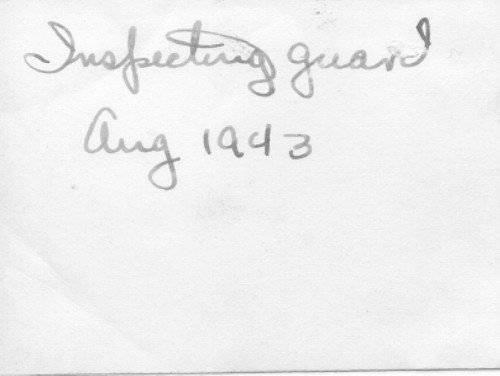 Inspecting guard
Aug 1943